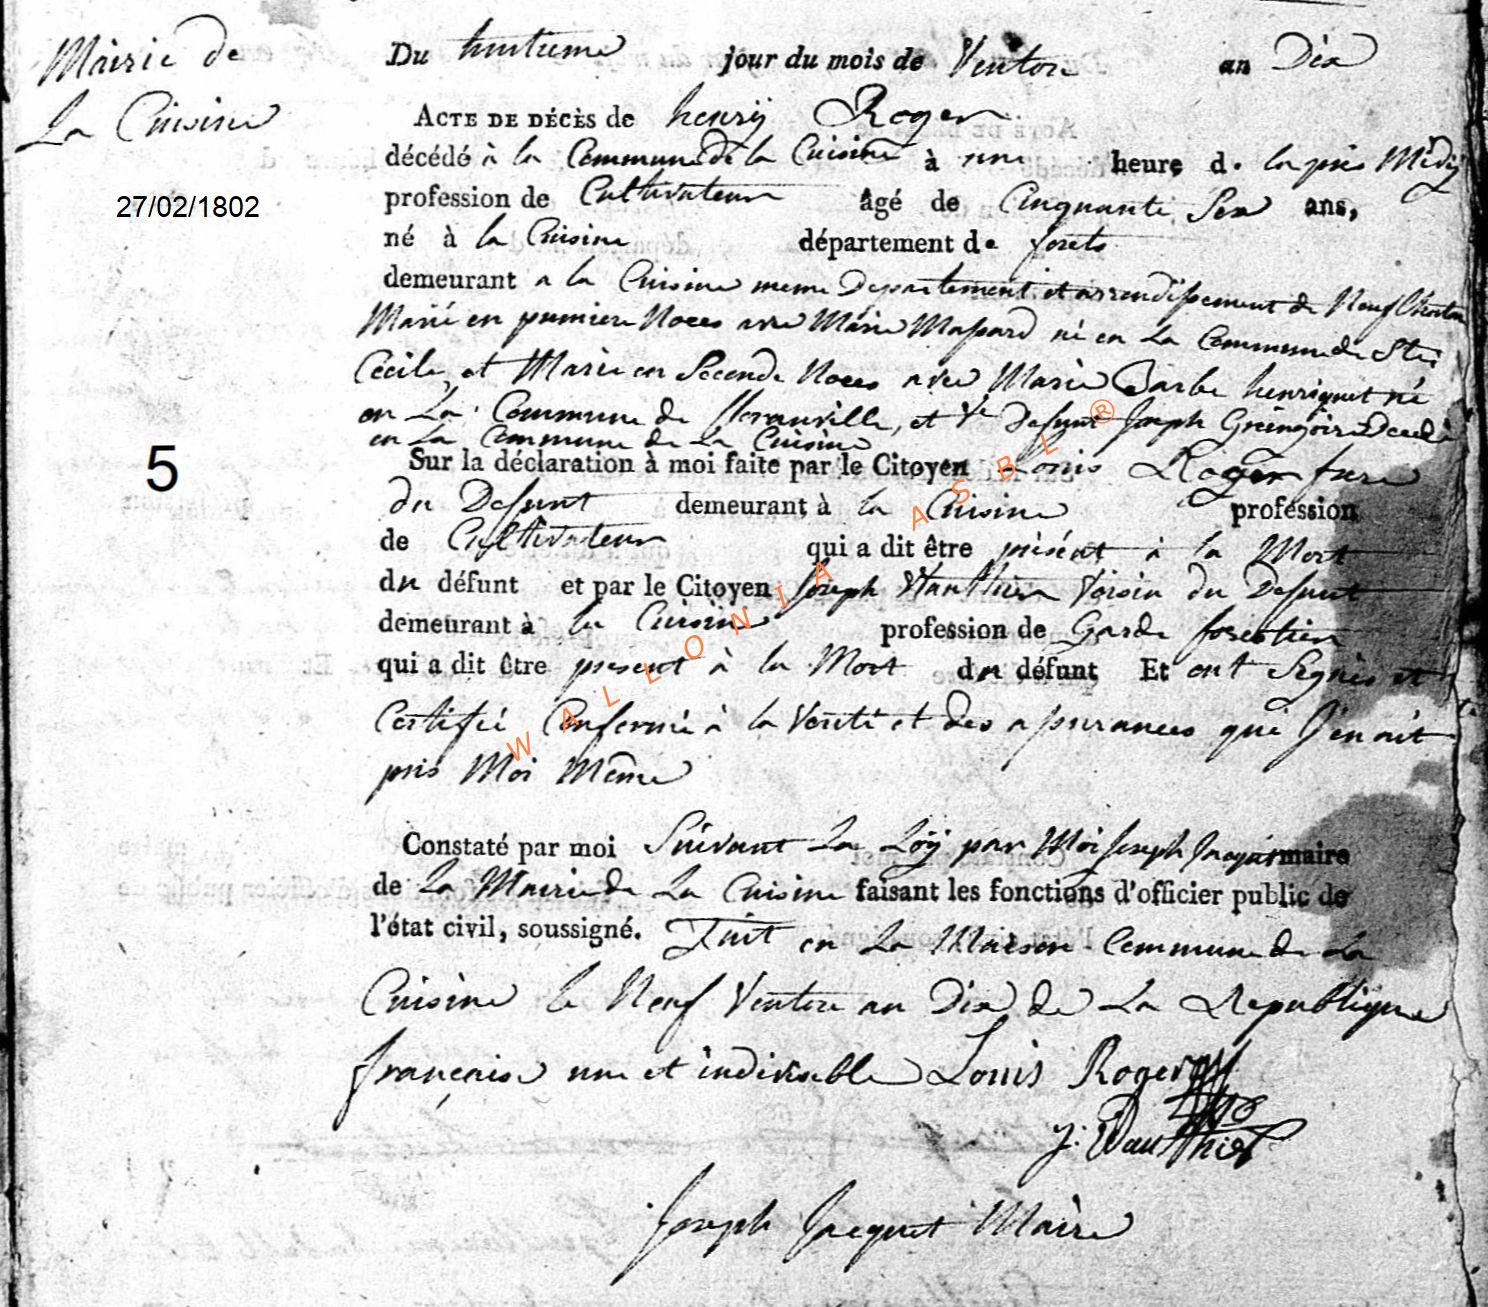 Mairie de
La Cuisine
27/02/1802
5
Du huitieme jour du mois de Ventose an Dix
ACTE DE DÉCÈS de henrÿ Roger
décédé à la Commune de la Cuisine à une heure d. la pres Midÿ
profession de Cultivateur âgé de Cinquante Six ans,
né à la Cuisine département de forets
demeurant a la Cuisine meme Departement et arrendissement de Neufchateau
Marié en premiere Noces avec Marie Massard né en La Commune de Ste
Cécile, et Marié en Seconde Noces avec Marie Barbe henriquet né
en La Commune de florenville, et Ve Defunt Joseph Gringoire Decedé
en La Commune de La Cuisine
Sur la déclaration à moi faite par le Citoyen Louis Roger frere
du Defunt demeurant à la Cuisine profession
de Cultivateur qui a dit être présent à la Mort
du défunt et par le Citoyen Joseph Wauthier Voisin du Defunt
demeurant à la Cuisine profession de Garde forestier
qui a dit être present à la Mort du défunt Et ont Segnés et
Certifié Conforme à la Verité et des assurances que J'en ait
pris Moi Même
Constaté par moi Suivant La Loÿ par Moi Joseph Jacquet maire
de La Mairie de La Cuisine faisant les fonctions d'officier public de
l'état civil, soussigné. Fait en La Maison Commune de La
Cuisine le Neuf Ventose an Dix de La Republique
française une et indivisible Louis Roger
J: Wauthier
Joseph Jacquet Maire
WALLONIA ASBL ®